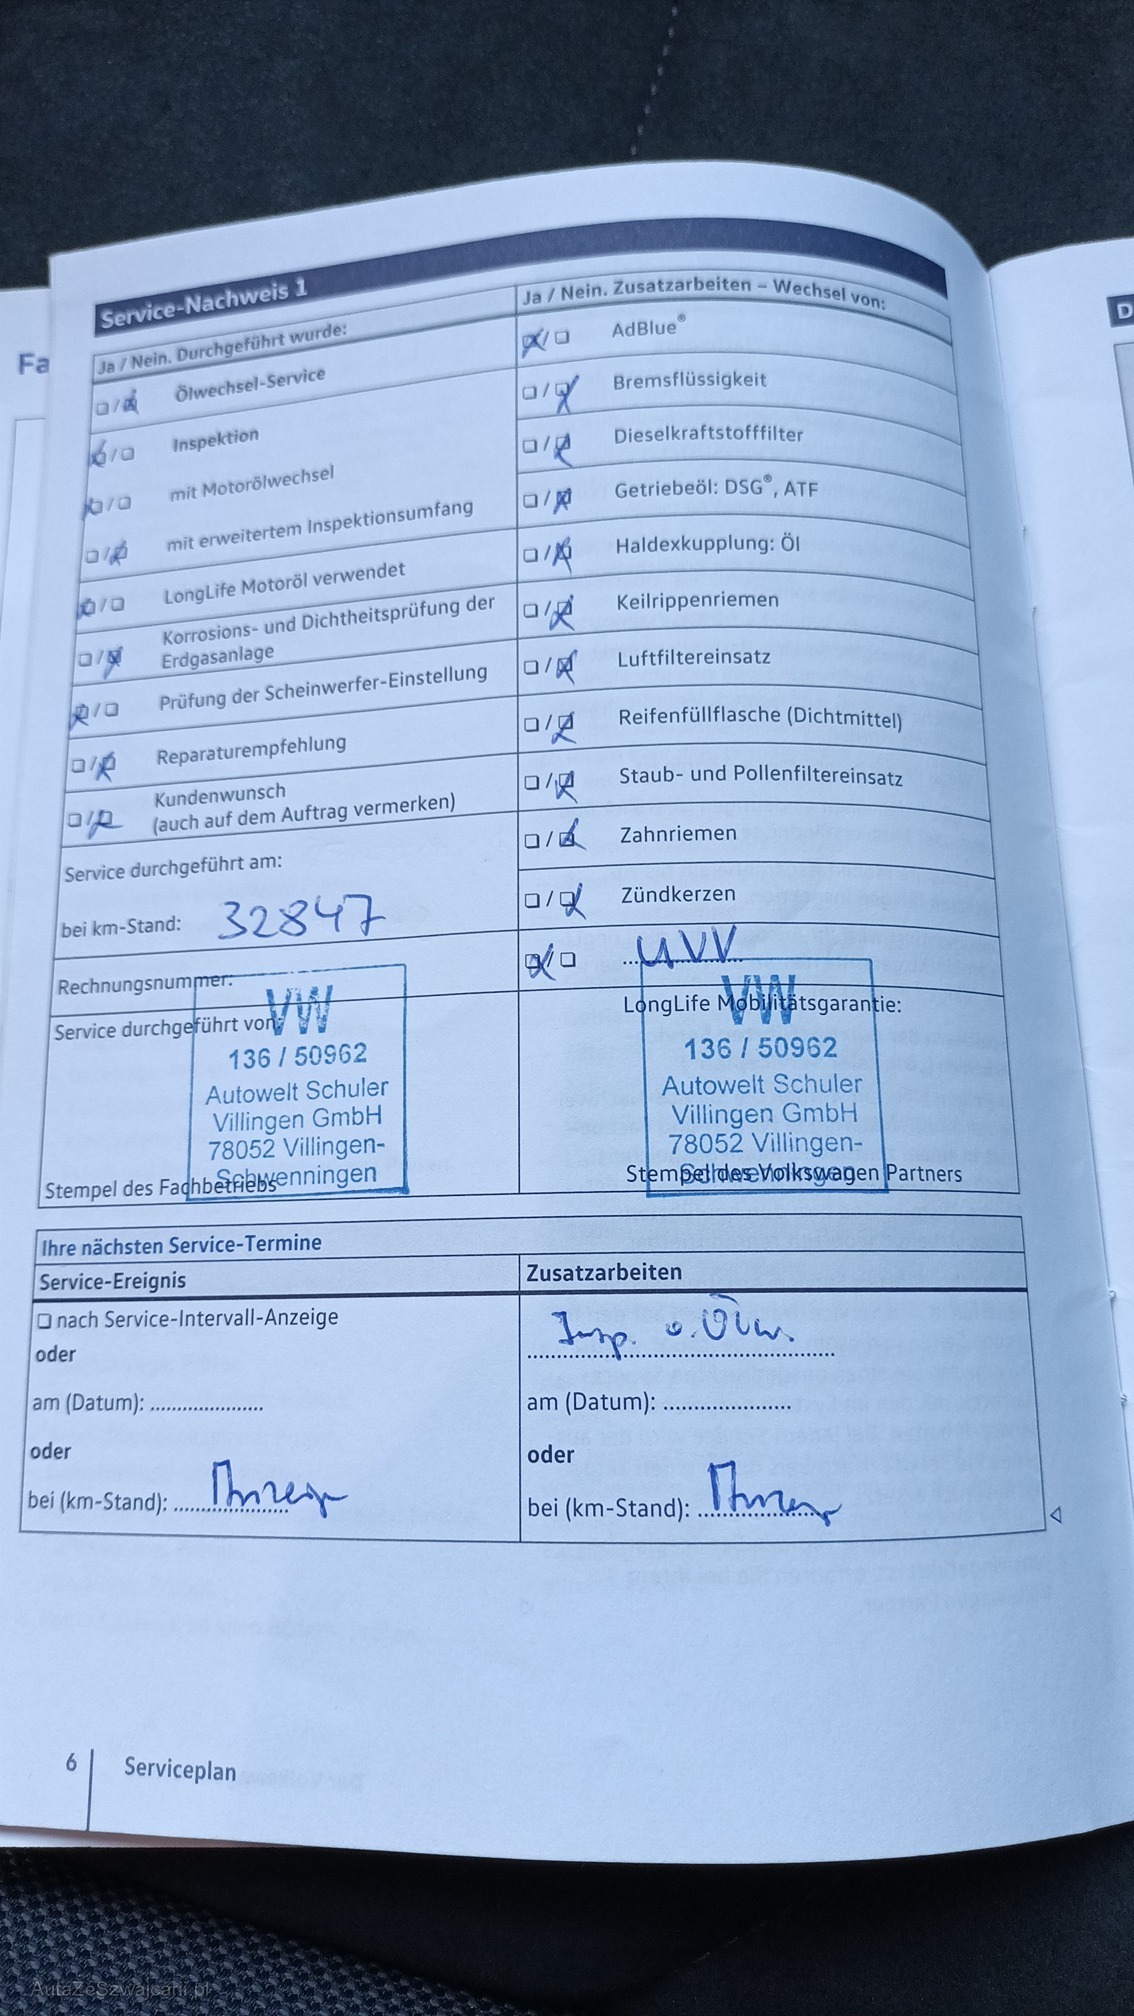 Fa
Service-Nachweis 1
Ja / Nein. Durchgeführt wurde:
Ölwechsel-Service
Inspektion
mit Motorölwechsel
mit erweitertem Inspektionsumfang
LongLife Motoröl verwendet
Korrosions- und Dichtheitsprüfung der
Erdgasanlage
Prüfung der Scheinwerfer-Einstellung
Reparaturempfehlung
Kundenwunsch
(auch auf dem Auftrag vermerken)
Service durchgeführt am:
bei km-Stand: 32847
Rechnungsnummer:
Service durchgeführt von:
VW
136 / 50962
Autowelt Schuler
Villingen GmbH
78052 Villingen-
Schwenningen
Stempel des Fachbetriebs
Ja / Nein. Zusatzarbeiten – Wechsel von:
AdBlue®
Bremsflüssigkeit
Dieselkraftstofffilter
Getriebeöl: DSG®, ATF
Haldexkupplung: Öl
Keilrippenriemen
Luftfiltereinsatz
Reifenfüllflasche (Dichtmittel)
Staub- und Pollenfiltereinsatz
Zahnriemen
Zündkerzen
UVV
LongLife Mobilitätsgarantie:
VW
136 / 50962
Autowelt Schuler
Villingen GmbH
78052 Villingen-
Schwenningen
Stempel des Volkswagen Partners
Ihre nächsten Service-Termine
Service-Ereignis
nach Service-Intervall-Anzeige
oder
am (Datum): ......................
oder
bei (km-Stand):
Zusatzarbeiten
Insp. o. Ölw.
am (Datum): ......................
oder
bei (km-Stand):
6 Serviceplan
D
AutaZeSzwajcarii.pl